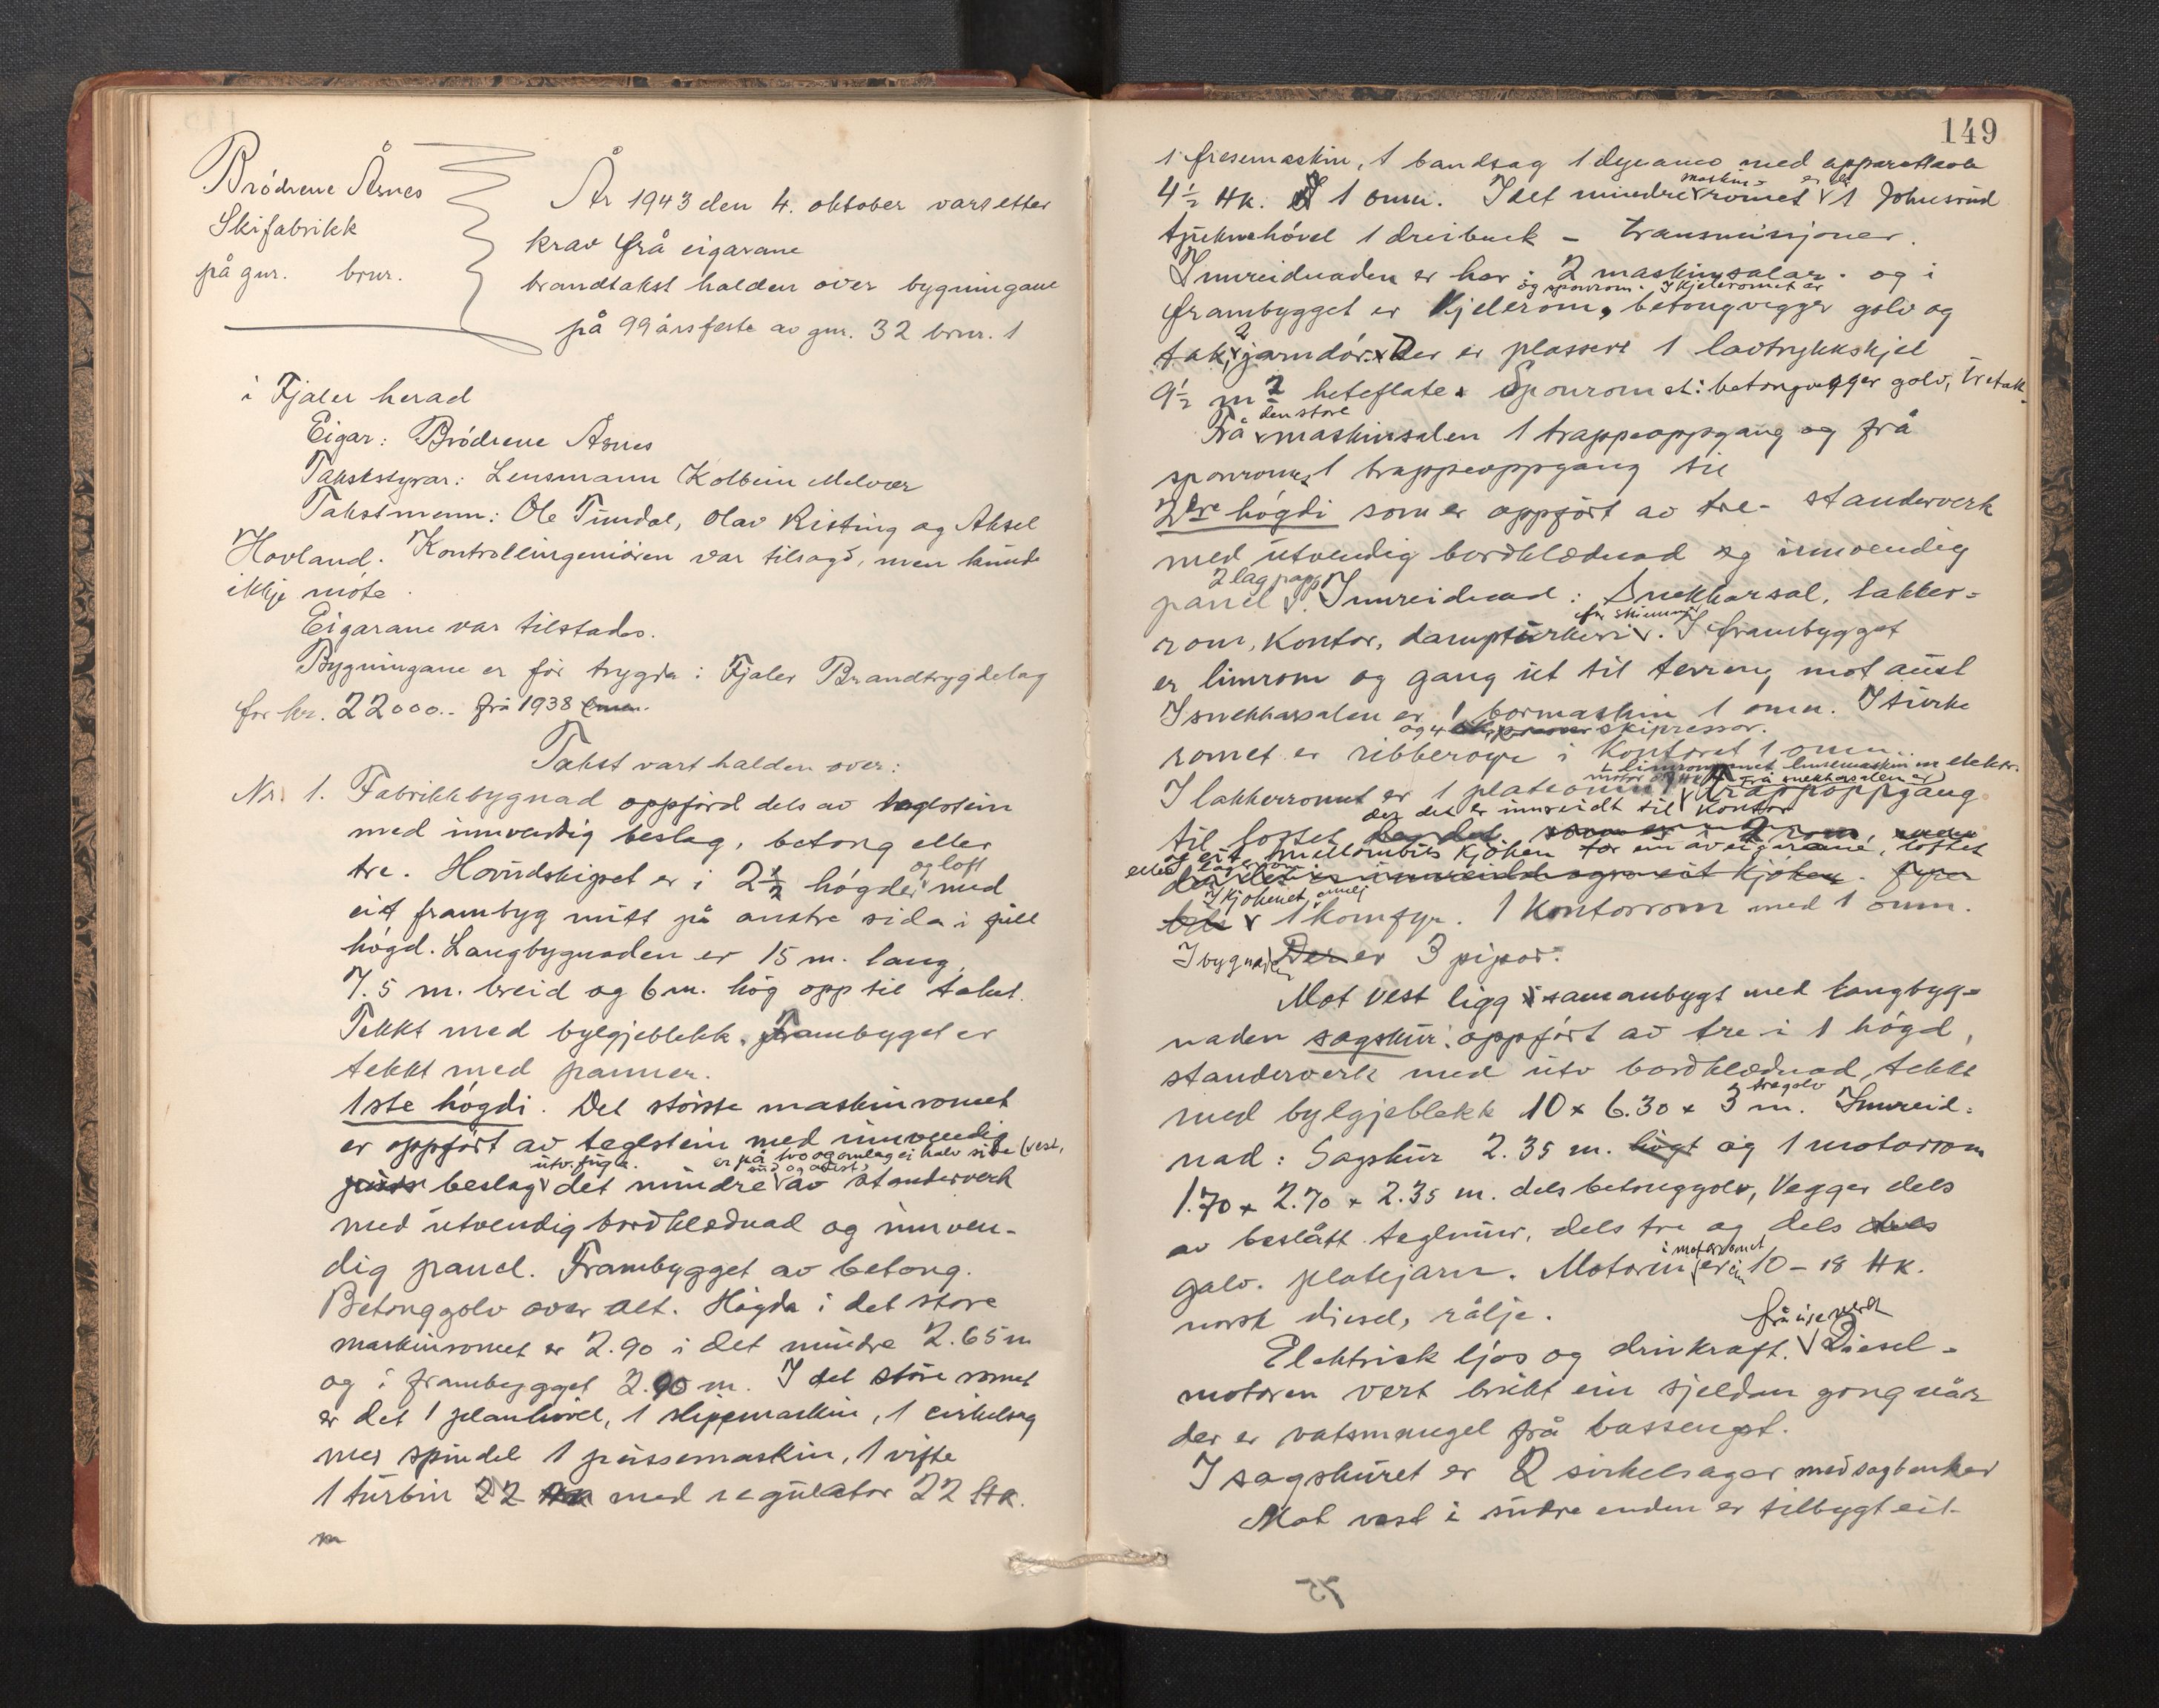 Brödrene Åsnes
Skifabrikk
på gnr. brnr.
År 1943 den 4. oktober vart etter
krav frå eigarane
brandtakst halden over bygningane
på 99 årsfeste av gnr. 32 brnr. 1
i Fjaler herad
Eigar: Brödrene Åsnes
Takststyrar: Lensmann Kolbein Melvær
Takstmenn: Ole Tundal, Olav Risting og Aksel
Hovland. Kontrollingeniören var tilsagd, men kunde
ikkje möte.
Eigarane var tilstades.
Bygningane er för trygda i Fjaler Brandtrygdelag
for kr. 22000.- frå 1938
Takst vart halden over:
Nr. 1. Fabrikkbygnad oppförd dels av teglstein
med innvendig beslag, betong eller
tre. Hovudskipet er i 2½ högder og loft med
eit frambyg mitt på austre sida i full
högd. Langbygnaden er 15 m. lang,
7.5 m. breid og 6 m. hög opp til taket.
Tekkt med bylgjeblekk. Frambyget er
tekkt med panner.
1ste högdi. Det störste maskinromet
er oppfört av teglstein med innvendig
utv. fuga. er på tvo og omlag ei halv side (vest,
sud og aust)
puss beslag det mindre av standerverk
med utvendig bordklædnad og innven-
dig panel. Frambygget av betong.
Betonggolv over alt. Högda i det store
maskinromet er 2.90 i det mindre 2.65 m
og i frambygget 2.90 m. I det store romet
er det 1 planhövel, 1 slipemaskin, 1 cirkelsag
med spindel 1 pussemaskin, 1 vifte
1 turbin 22 HK med regulator 22 HK.
m
149
1 fresemaskin, 1 bandsag 1 dynamo med apparattavle
4½ HK. 1 omn. I det mindre maskin- romet er der 1 Johnsrud
tjukнehövel 1 dreibenk - transmisjoner.
Innreidnaden er her: 2 maskinsalar. og i
og sponrom. I kjeleromet er
frambygget er Kjelerom, betongvegger golv og
tak, 2 jarndör. Der er plassert 1 lavtrykkskjel
9½ m2 heteflate. Sponromet: betongvegger golv, tretak.
Frå den store maskinsalen 1 trappeoppgang og frå
sponromet 1 trappeoppgang til
2dre högdi som er oppfört av tre- standerverk
med utvendig bordklædnad og innvendig
panel 2 lag papp. Innreidnad: Snekkarsal, lakker-
rom, kontor, damptürkeri for skiemner. I frambygget
er limrom og gang ut til terreng mot aust
I snekkarsalen er 1 bormaskin 1 omn. I türke
og 4 skipressor.
romet er ribberøyr i Kontoret 1 omn.
I limromet limemaskin m elektr.
motor HK Frå snekkarsalen er
I lakkerromet er 1 plateomn trappoppgang
der det er innreidt til kontor
til loftet
og eit mellombils kjöken for ein av eigarane, loftet
elles lagerrom
der det er innreidt ogso eit kjöken.
I kjökenet omn, 1 komfyr. 1 Kontorrom med 1 omn.
I bygnaden Der er 3 pipor.
Mot vest ligg samanbygt med langbyg-
naden sagskur: oppfört av tre i 1 högd,
standerverk med utv bordklædnad, tekkt
med bylgjeblekk 10 x 6.30 x 3 m. tregolv Innreid-
nad: Sagskur 2.35 m. högt og 1 motorrom
1.70 x 2.70 x 2.35 m. dels betonggolv, Vegger dels
av beslått teglmur, dels tre og dels dels
galv. platejarn. Motoren i motorromet er ein 10 - 18 HK.
norsk diesel, rålje.
Elektrisk ljos og drivkraft. frå eige verk Diesel-
motoren vert brukt ein sjeldan gong når
der er vatsmangel frå bassenget.
I sagskuret er 2 sirkelsager med sagbenker
Mot vest i sudre enden er tilbygt eit
75